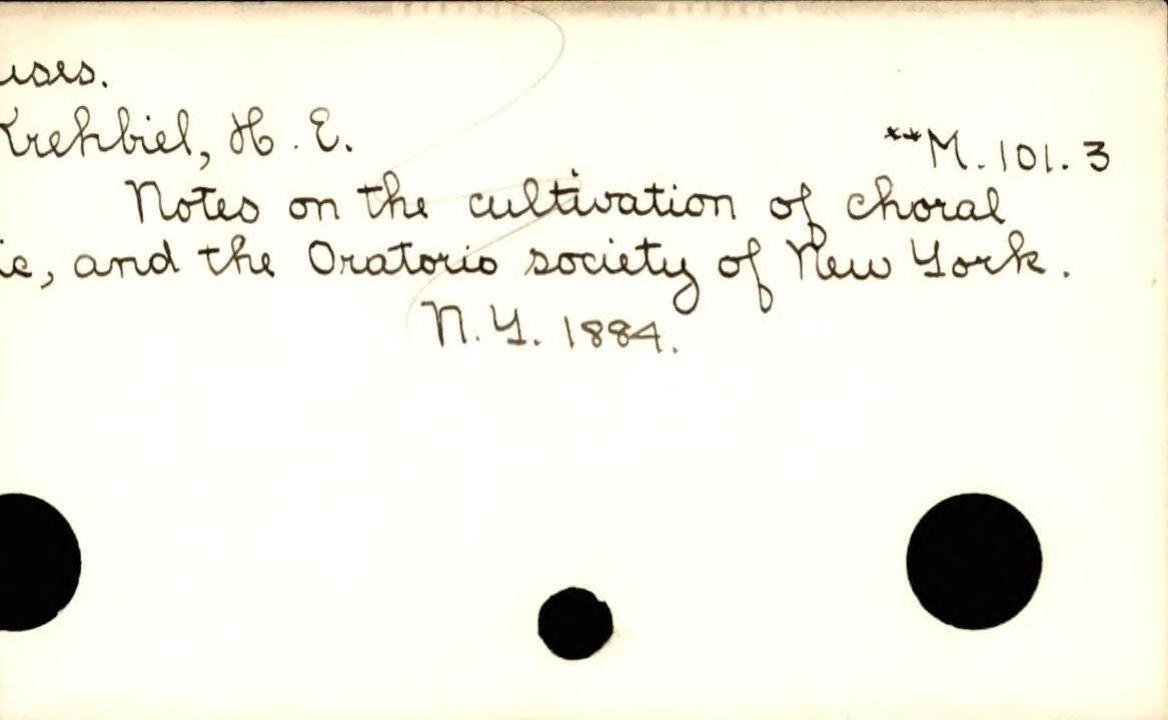 uses.
Krehbiel, H. E.
**M.101.3
Notes on the cultivation of choral
ic, and the Oratorio society of New York.
N.Y. 1884.